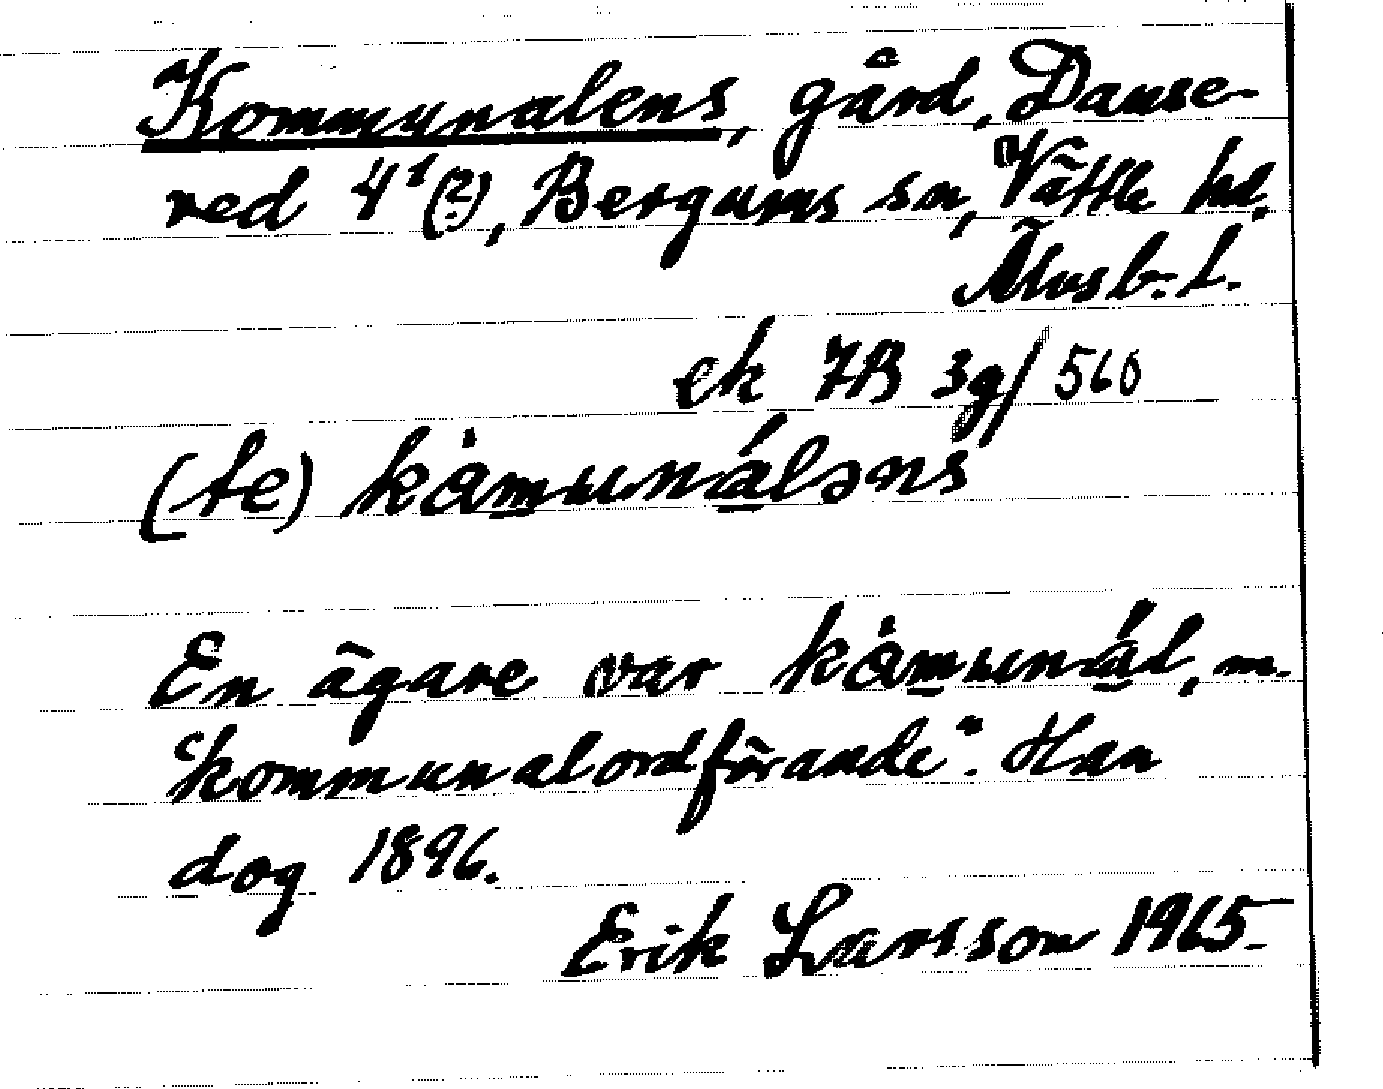 Kommunalens, gård, Danse-
red 4¹(?), Bergums sn, Vättle hd.
Älvsb. l.
ek 7B 3g/560
(te) kåmunáləns
En ägare var kåmunál, m.
"kommunalordförande". Han
dog 1896.
Erik Larsson 1965